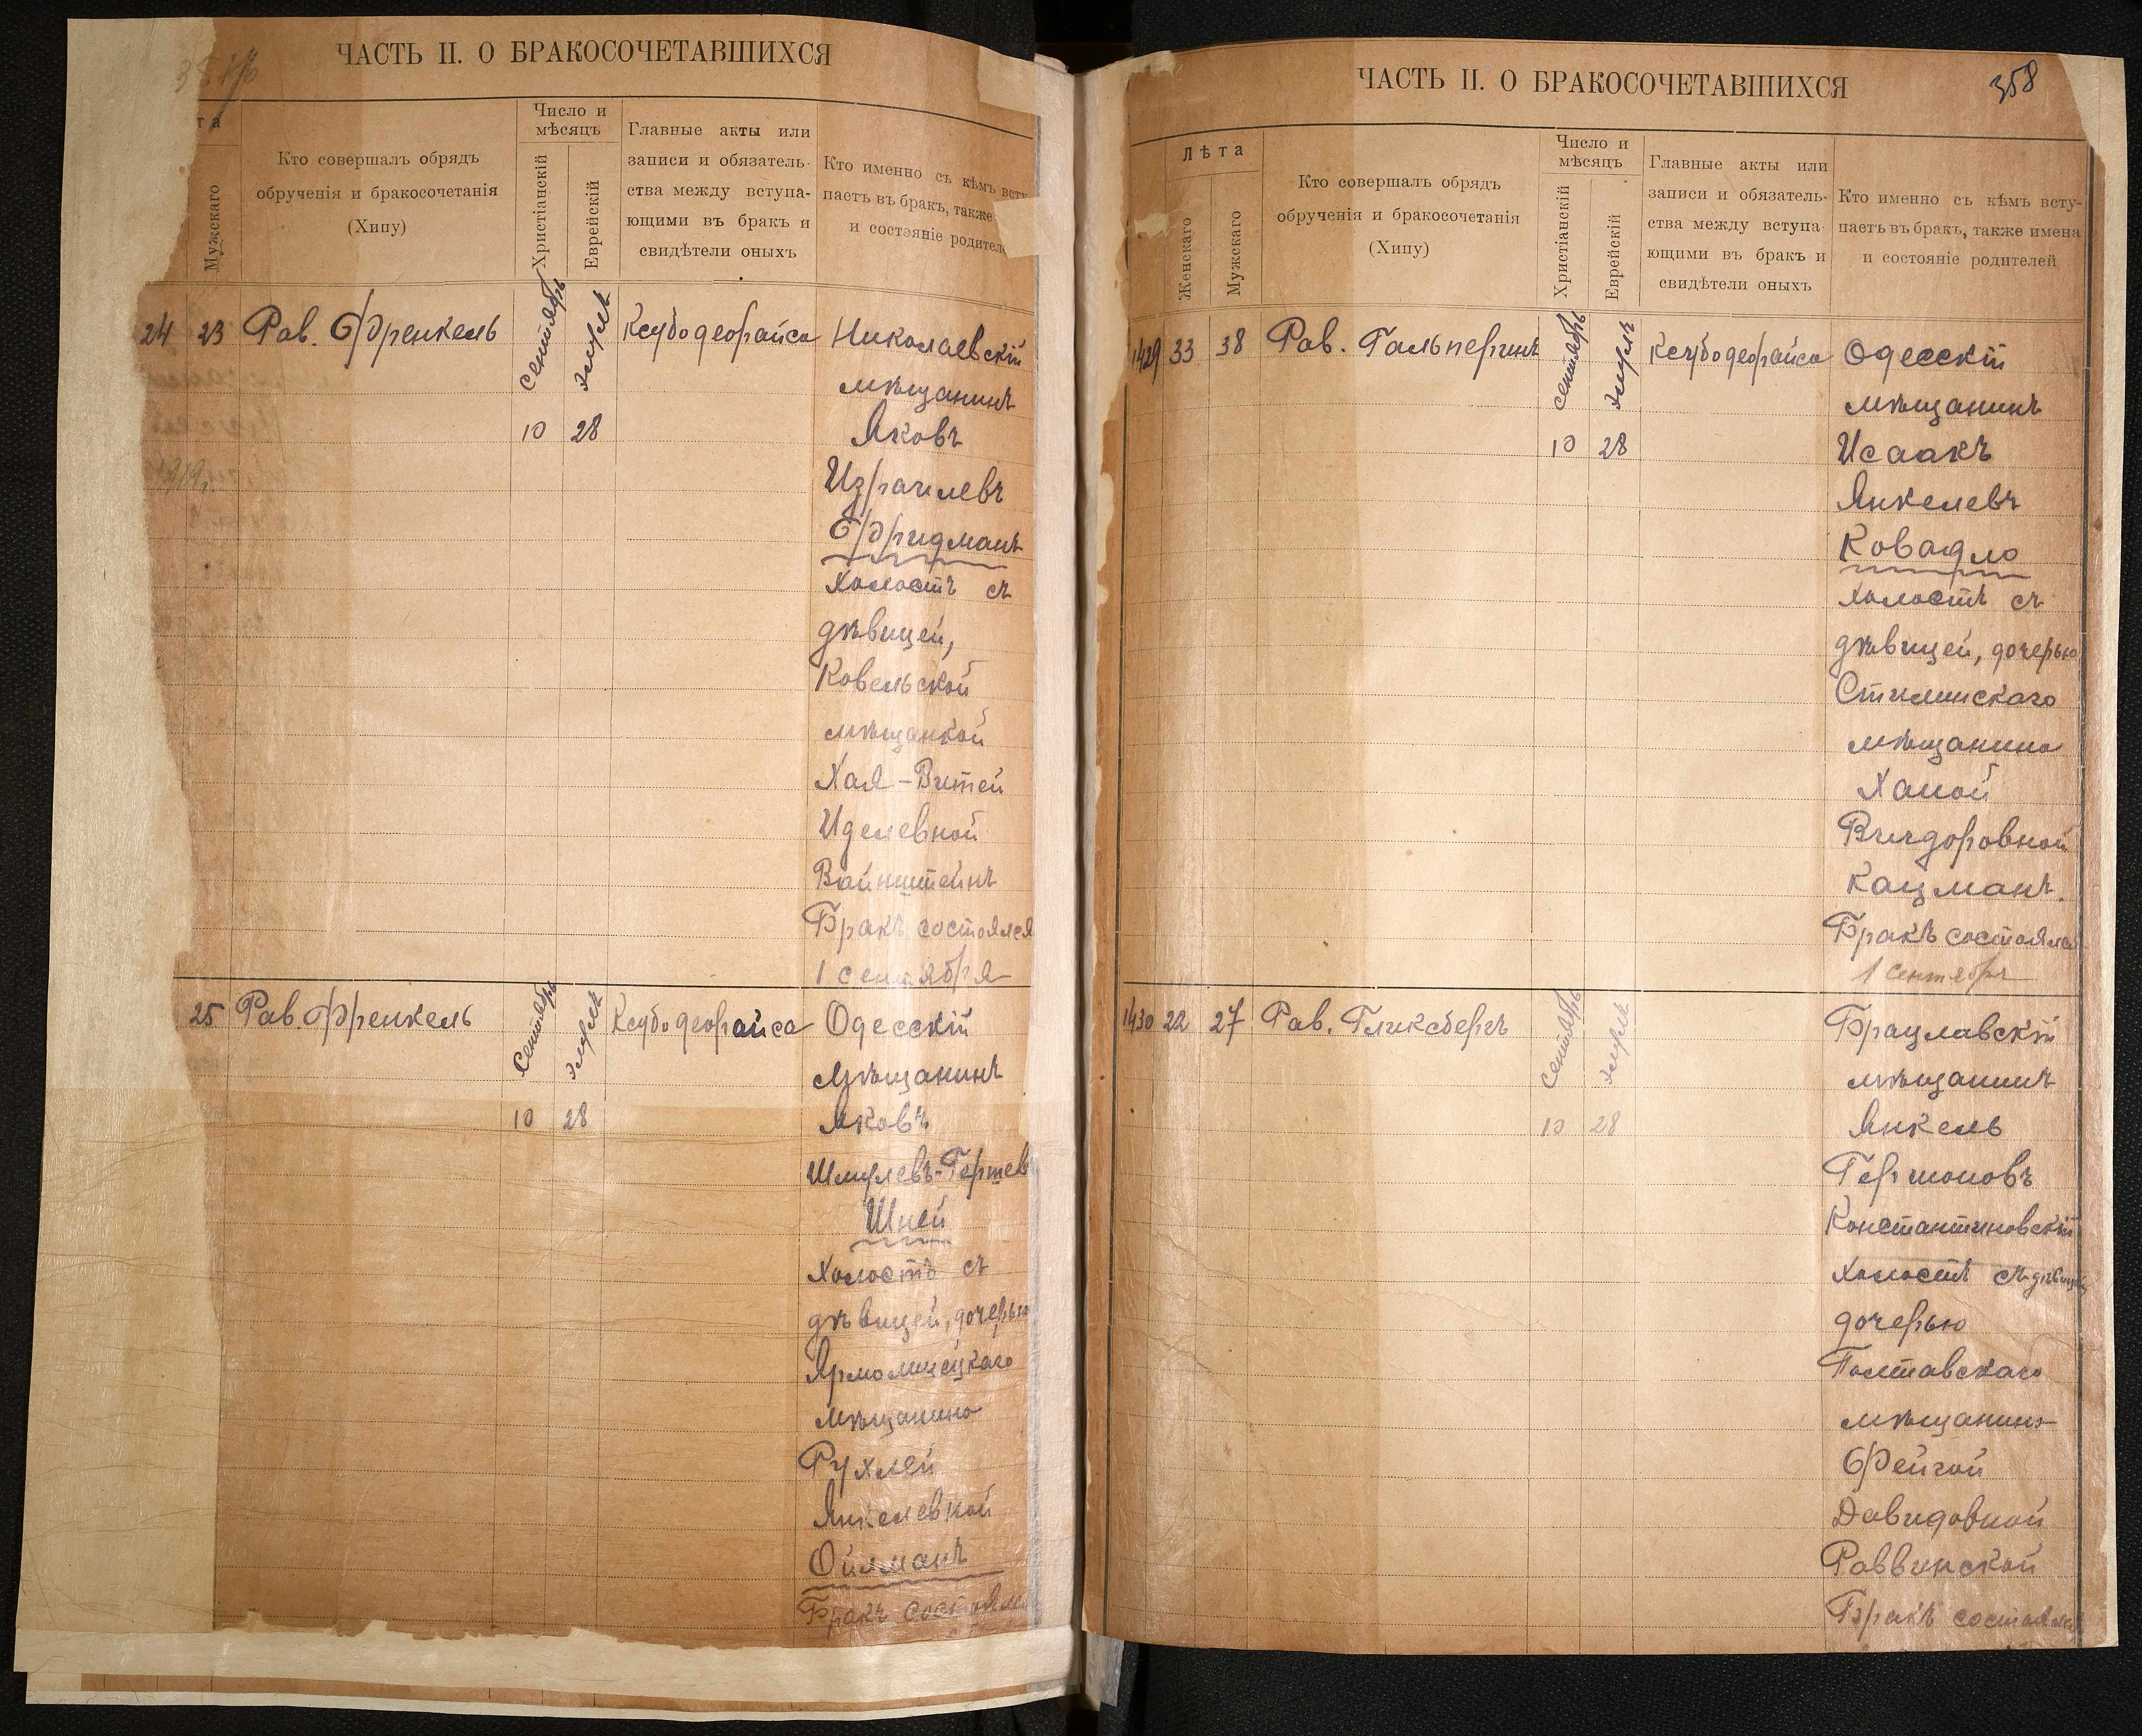 ЧАСТЬ II. О БРАКОСОЧЕТАВШИХСЯ
та
Мужскаго
Кто совершалъ обрядъ
обрученія и бракосочетанія
(Хипу)
Число и
мѣсяцъ
Христіанскій
Еврейскій
Главные акты или
записи и обязатель-
ства между вступа-
ющими въ бракъ и
свидѣтели оныхъ
Кто именно съ кѣмъ всту
паетъ въ бракъ, также
и состояніе родител
24 23 Рав. Френкель сентябрь элулъ Ксубодеорайса Николаевскій
мѣщанинъ
10 28 Яковъ
Израилевъ
Фридманъ
холостъ съ
дѣвицей,
Ковельской
мѣщанкой
Хая-Витей
Иделевной
Вайнштейнъ
Бракъ состоялся
1 сентября
25 Рав. Френкель сентябрь элулъ Ксубодеорайса Одесскій
мѣщанинъ
10 28 Яковъ
Шмулевъ-Гершев
Шней
холостъ съ
дѣвицей, дочерью
Ярмолинецкаго
мѣщанина
Рухлей
Янкелевной
Ойлманъ
Бракъ состоялся
ЧАСТЬ II. О БРАКОСОЧЕТАВШИХСЯ
358
Лѣта
Женскаго
Мужскаго
Кто совершалъ обрядъ
обрученія и бракосочетанія
(Хипу)
Число и
мѣсяцъ
Христіанскій
Еврейскій
Главные акты или
записи и обязатель-
ства между вступа-
ющими въ бракъ и
свидѣтели оныхъ
Кто именно съ кѣмъ всту-
паетъ въ бракъ, также имена
и состояніе родителей
1429 33 38 Рав. Гальперинъ сентябрь элулъ Ксубодеорайса Одесскій
мѣщанинъ
10 28 Исаакъ
Янкелевъ
Ковадло
холостъ съ
дѣвицей, дочерью
мѣщанина
Ханой
Вигдоровной
Кацманъ.
Бракъ состоялся
1 сентября
1430 22 27 Рав. Гликсбергъ сентябрь элулъ Брацлавскій
мѣщанинъ
10 28 Янкель
Гершоновъ
Константиновскій
холостъ съ дѣвицей
дочерью
Полтавскаго
мѣщанина
Фейгой
Давидовной
Раввинской
Бракъ состоялся